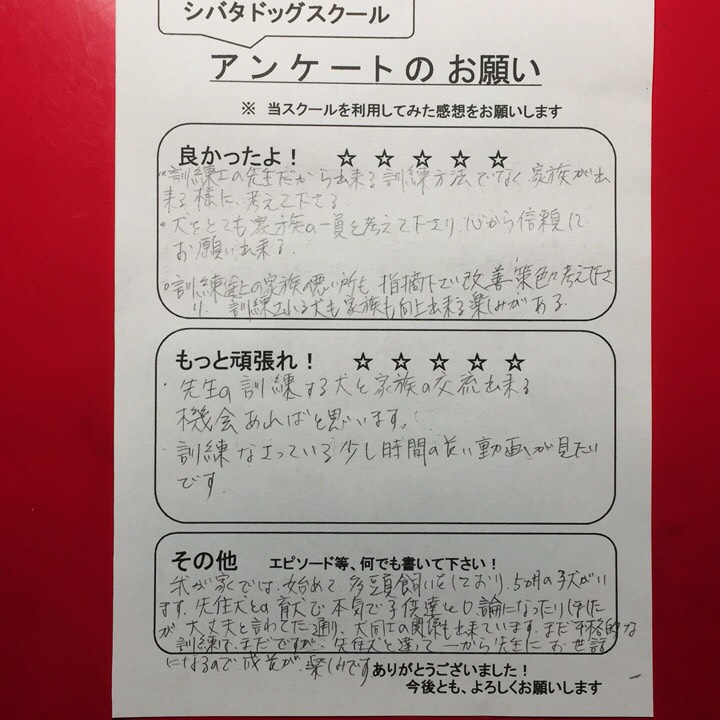 シバタドッグスクール
アンケートのお願い
※ 当スクールを利用してみた感想をお願いします
良かったよ! ☆ ☆ ☆ ☆ ☆
・訓練士の先生だから出来る訓練方法でなく家族が出
来る様に、考えて下さる
・犬をとても家族の一員と考えて下さり、心から信頼に
お願い出来る.
・訓練途上の家族の悪い所も指摘下さい改善策色々考え下さ
り、訓練される犬も家族も向上出来る楽しみがある.
もっと頑張れ! ☆ ☆ ☆ ☆ ☆
・先生の訓練する犬と家族の交流出来る
機会あればと思います。
・訓練なさっている少し時間の長い動画が見たい
です.
その他 エピソード等、何でも書いて下さい!
我が家では、始めて多頭飼いをしており、5ヵ月の子犬がい
ます.先住犬との育犬で本気で子供達と口論になったりしました
が、大丈夫と言わてた通り、犬同士の関係も出来ています.まだ本格的な
訓練で、まだですが、先住犬と違って一から先生にお世話
になるので成長が、楽しみです
ありがとうございました!
今後とも、よろしくお願いします